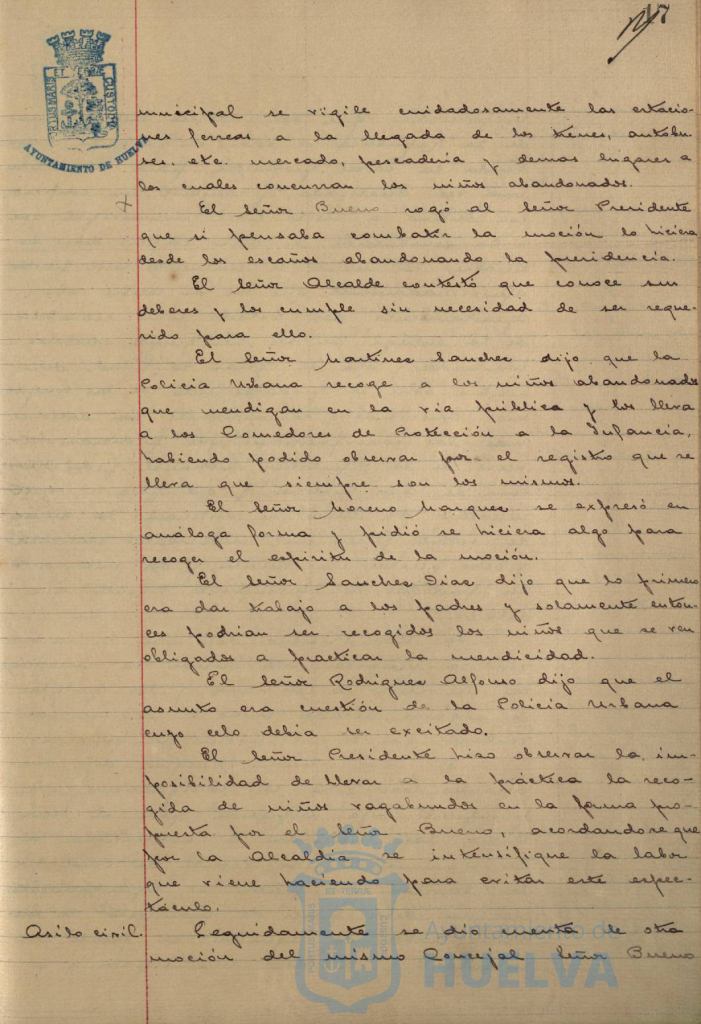 PORTUS MARIS ET TERRE CUSTODIA
AYUNTAMIENTO DE HUELVA
municipal se vigile cuidadosamente las estacio-
nes ferreas a la llegada de los trenes, autobu-
ses, etc. mercado, pescaderia y demas lugares a
los cuales concurran los niños abandonados.
El Señor Bueno rogó al Señor Presidente
que si pensaba combatir la moción lo hiciera
desde los escaños abandonando la presidencia.
El Señor Alcalde contestó que conoce sus
deberes y los cumple sin necesidad de ser reque-
rido para ello.
El Señor Martinez Sanchez dijo que la
Policia Urbana recoge a los niños abandonados
que mendigan en la via pública y los lleva
a los Comedores de Protección a la Infancia,
habiendo podido observar por el registro que se
lleva que siempre son los mismos.
El Señor Moreno Marquez se expresó en
análoga forma y pidió se hiciera algo para
recoger el espiritu de la moción.
El Señor Sanchez Diaz dijo que lo primero
era dar trabajo a los padres y solamente enton-
ces podrian ser recogidos los niños que se ven
obligados a practicar la mendicidad.
El Señor Rodriguez Alfonso dijo que el
asunto era cuestión de la Policia Urbana
cuyo celo debia ser excitado.
El Señor Presidente hizo observar la im-
posibilidad de llevar a la práctica la reco-
gida de niños vagabundos en la forma pro-
puesta por el Señor Bueno, acordandose que
por la Alcaldia se intensifique la labor
que viene haciendo para evitar este espec-
táculo.
Asilo civil. Seguidamente se dio cuenta de otra
moción del mismo Concejal Señor Bueno
Ayuntamiento de
HUELVA